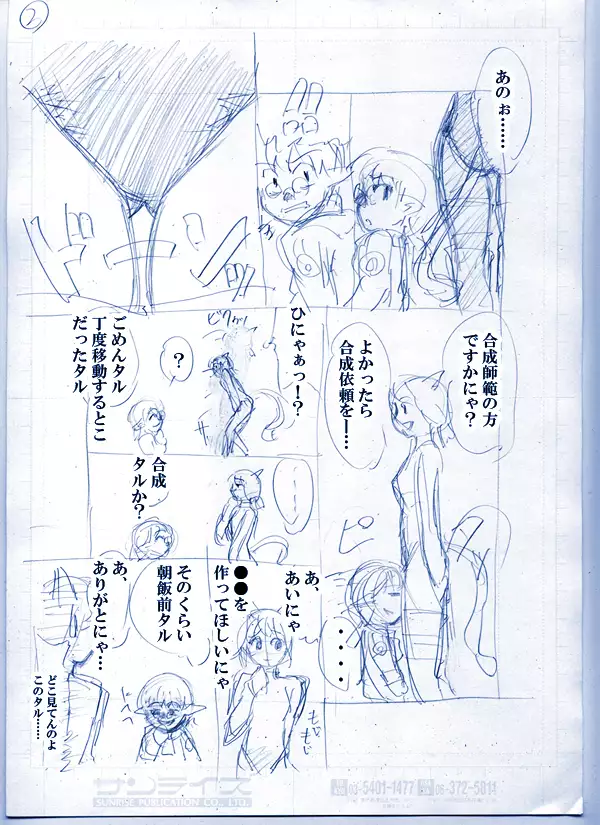 2
あのぉ……
ドーン
合成師範の方
ですかにゃ？
よかったら
合成依頼を―…
ピ
・・・・
ひにゃぁっ！？
ビクッ
？
ごめんタル
丁度移動するとこ
だったタル
合成
タルか？
あ、
あいにゃ
●●を
作ってほしいにゃ
もじ
もじ
そのくらい
朝飯前タル
あ、
ありがとにゃ…
どこ見てんのよ
このタル……
サンライズ
SUNRISE PUBLICATION CO., LTD.
03-5401-1477
06-372-5014